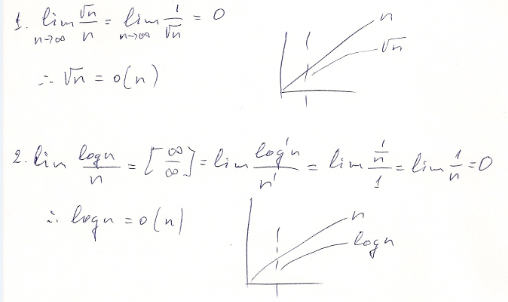 1. lim n→∞ √n/n = lim n→∞ 1/√n = 0
n
√n
1
∴ √n = o(n)
2. lim logn/n = [∞/∞] = lim log'n/n' = lim (1/n)/1 = lim 1/n = 0
∴ logn = o(n)
n
logn
1